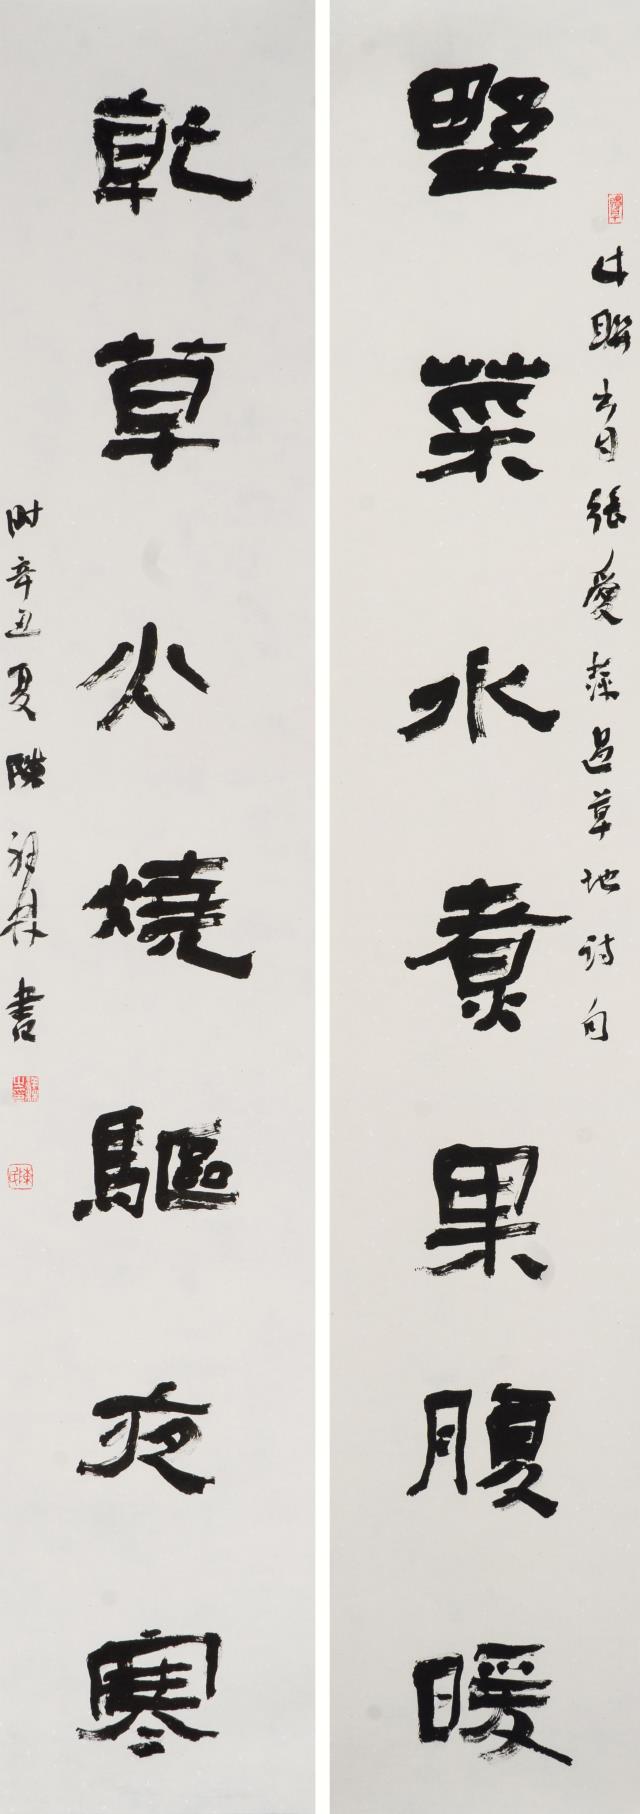 野菜水煮果腹暖
此聯出自張愛萍過草地詩句
乾草火燒驅夜寒
時辛丑夏陳祖林書